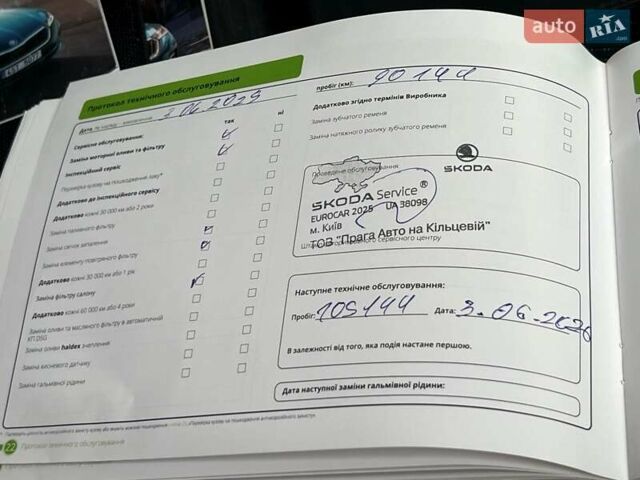 auto RIA .com
Протокол технічного обслуговування
Дата
2 06.2025
так ні
Сервісне обслуговування:
Заміна моторної оливи та фільтру
Інспекційний сервіс
Перевірка кузову на пошкодження лаку*
Додатково до інспекційного сервісу
Додатково кожні 30 000 км або 2 роки
Заміна паливного фільтру
Заміна свічок запалення
Заміна елементу повітряного фільтру
Додатково кожні 30 000 км або 1 рік
Заміна фільтру салону
Додатково кожні 60 000 км або 4 роки
Заміна оливи та масляного фільтру в автоматичній КП DSG
Заміна оливи haldex зчеплення
Заміна кисневого датчику
Заміна гальмівної рідини
22 Протокол технічного обслуговування
пробіг (км): 90144
Додатково згідно термінів Виробника
Заміна зубчатого ременя
Заміна натяжного ролику зубчатого ременя
Проведене обслуговування
SKODA
ŠKODA Service®
EUROCAR 2025 UA 38098
м. Київ
ТОВ "Прага Авто на Кільцевій"
сервісного центру
Наступне технічне обслуговування:
Пробіг: 105144 Дата: 3.06.2026
В залежності від того, яка подія настане першою.
Дата наступної заміни гальмівної рідини: